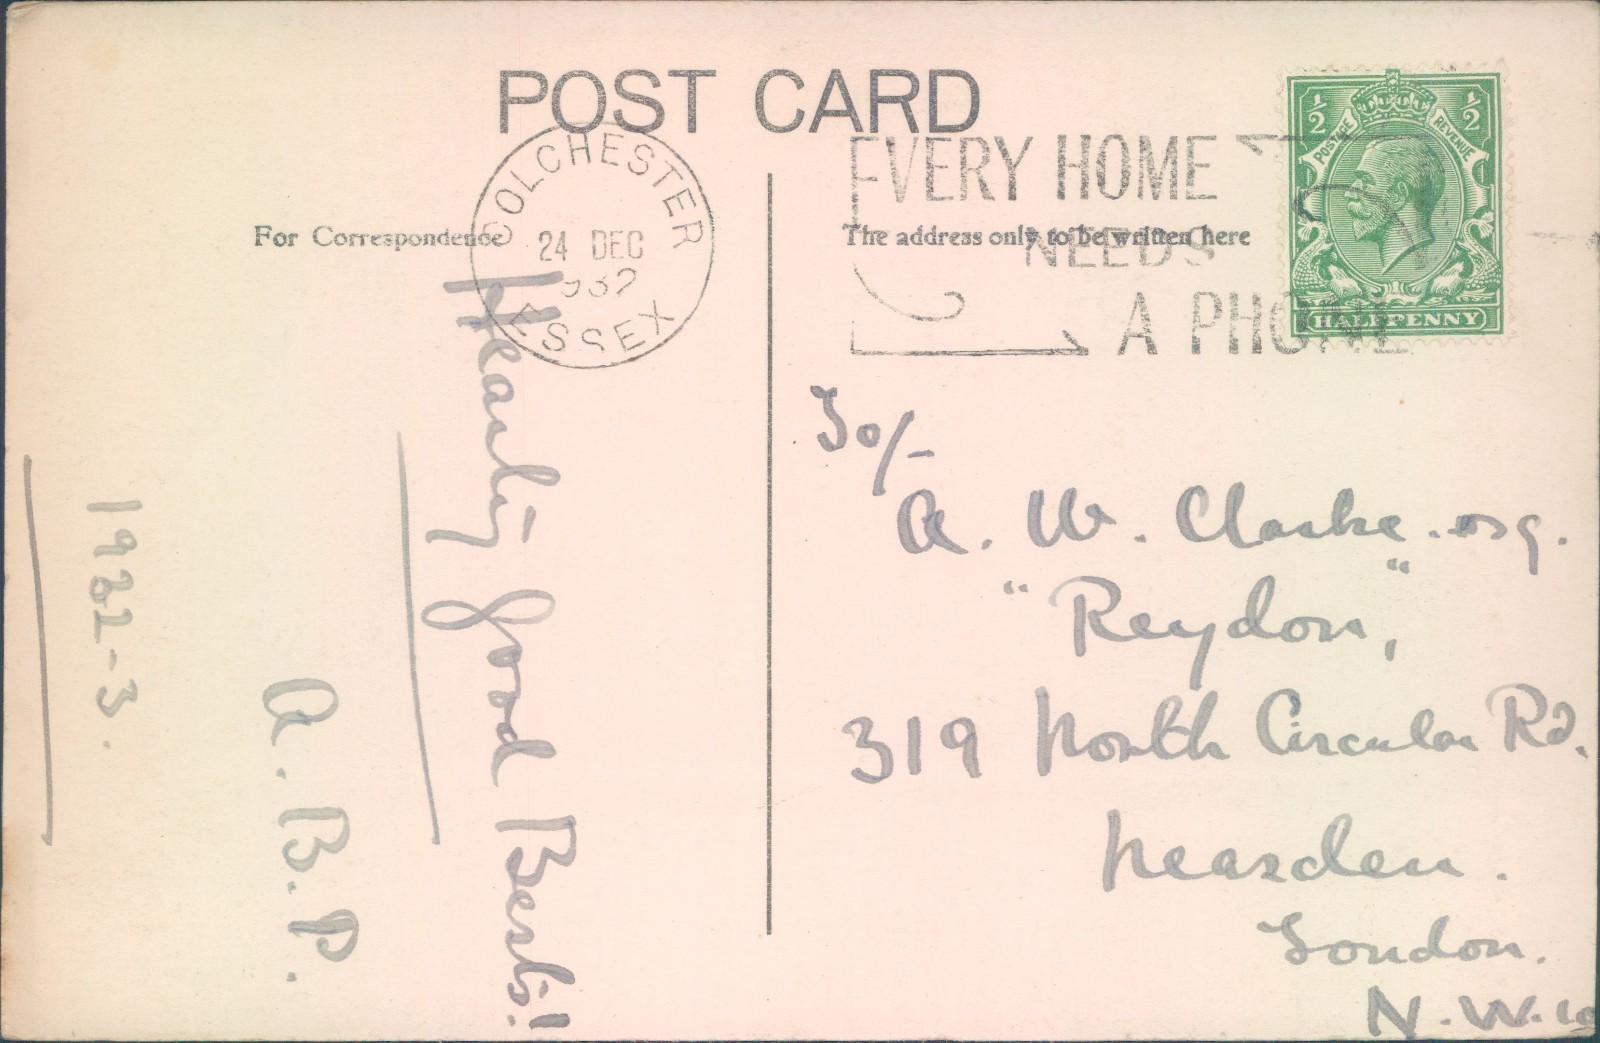 POST CARD
For Correspondence
COLCHESTER
24 DEC
1932
ESSEX
EVERY HOME
NEEDS
A PHONE
The address only to be written here
½ ½
POSTAGE REVENUE
HALFPENNY
Hearty Good
A. B. P.
1932-3.
To/-
A. W. Clarke. esq.
"Reydon,"
319 North Circular Rd.
Neasden.
London.
N.W.10